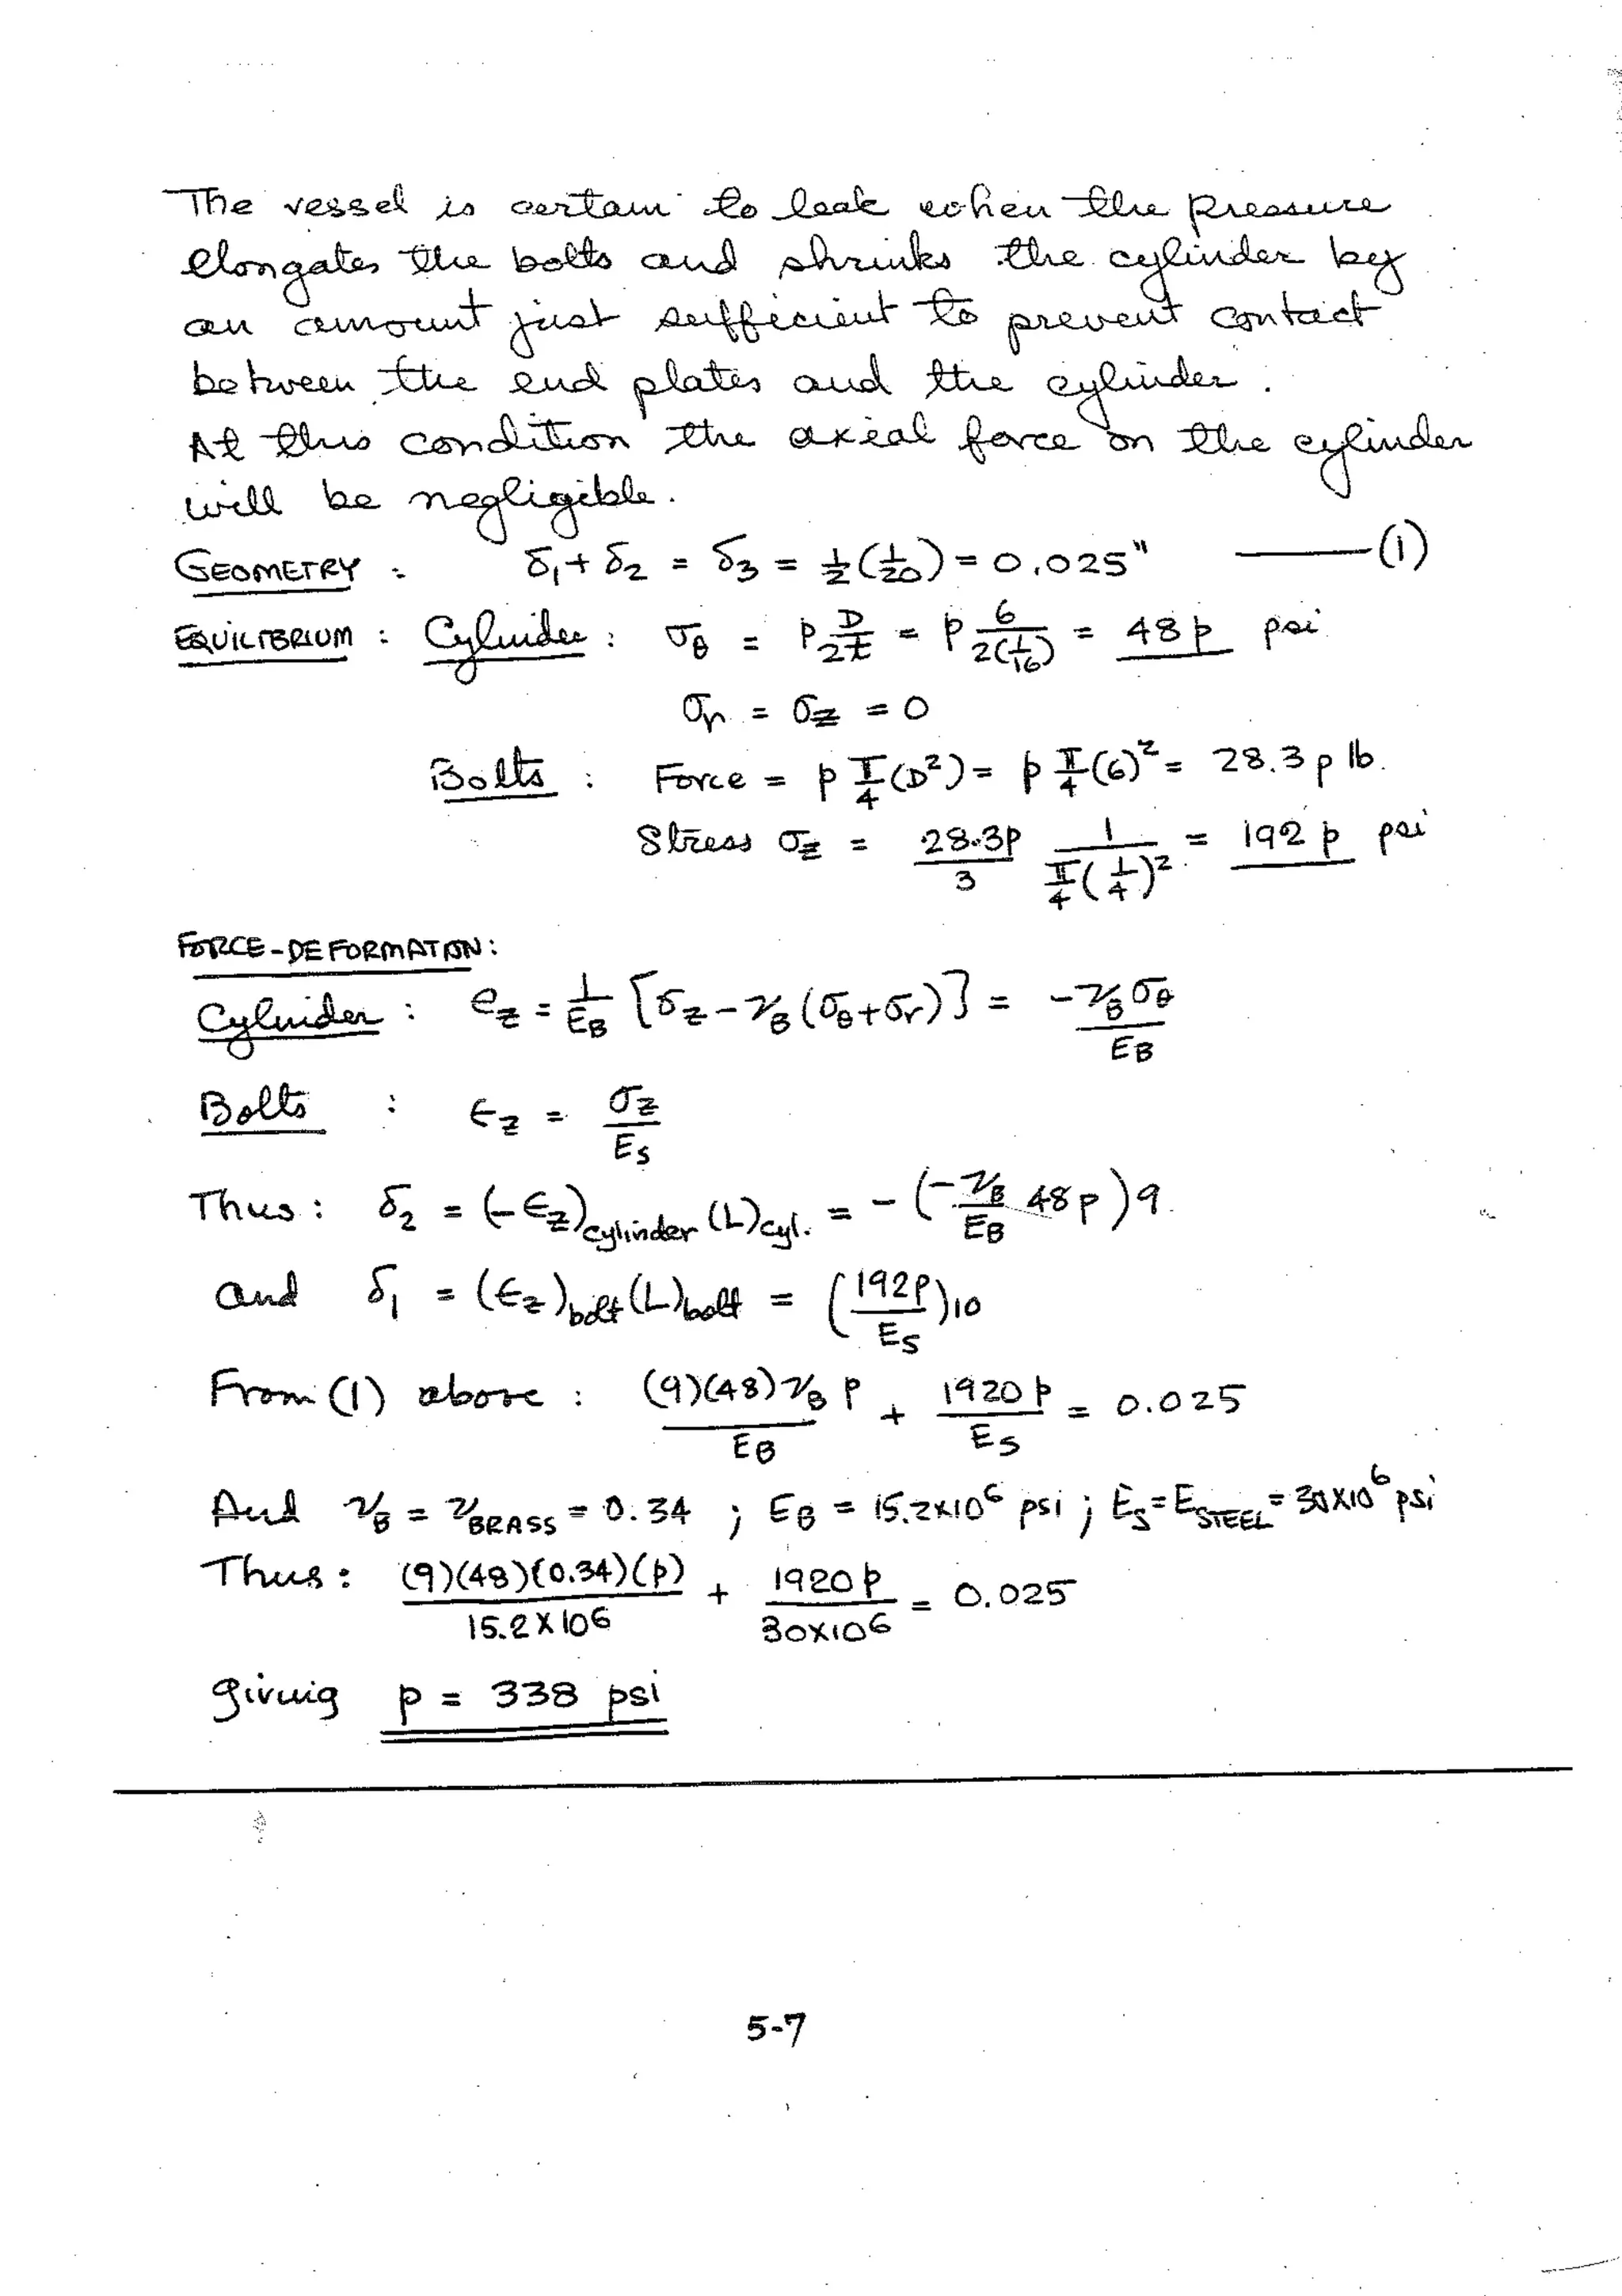 The vessel is certain to leak when the pressure
elongates the bolts and shrinks the cylinder by
an amount just sufficient to prevent contact
between the end plates and the cylinder.
At this condition the axial force on the cylinder
will be negligible.
GEOMETRY : δ₁ + δ₂ = δ₃ = 1/2 (1/20) = 0.025" ——(1)
EQUILIBRIUM : Cylinder : σ_θ = p D/2t = p 6/2(1/16) = 48 p psi
σ_r = σ_z = 0
Bolts : Force = p π/4 (D²) = p π/4 (6)² = 28.3 p lb.
Stress σ_z = 28.3p/3 1/(π/4 (1/4)²) = 192 p psi
FORCE-DEFORMATION:
Cylinder : e_z = 1/E_B [σ_z - ν_B (σ_θ + σ_r)] = -ν_B σ_θ/E_B
Bolts : ϵ_z = σ_z/E_S
Thus : δ₂ = (-ϵ_z)cylinder (L)cyl. = - (-ν_B/E_B 48 p) 9
and δ₁ = (ϵ_z)bolt (L)bolt = (192p/E_S) 10
From (1) above : (9)(48) ν_B p/E_B + 1920 p/E_S = 0.025
And ν_B = ν_BRASS = 0.34 ; E_B = 15.2x10⁶ psi ; E_S = E_STEEL = 30x10⁶ psi
Thus : (9)(48)(0.34)(p)/15.2 x 10⁶ + 1920 p/30x10⁶ = 0.025
giving p = 338 psi
5-7